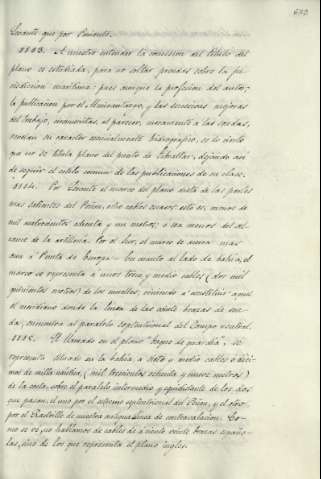 Levante, que por Poniente.
1113. A nuestro entender la omision del título del
plano es estudiada, para no soltar prendas sobre la ju-
risdiccion marítima: pues aunque la profesion del autor,
la publicacion por el Almirantazgo, y las secciones
del trabajo, circunscritas, al parecer, únicamente á las sondas,
su caracter esencialmente hidrografico, es lo cierto
que no se titula plano del puerto de Gibraltar, dejando asi
de seguir el estilo comun de las publicaciones de su clase.
1114. Por Levante el marco del plano dista de las partes
mas salientes del Peñon, ocho cables escasos esto es, menos de
mil cuatrocientos ochenta y un metros; ó sea menos del al-
cance de la artillería. Por el Sur, el marco se acerca mas
aun á Punta de Europa. En cuanto al lado de bahía, el
marco se representa á unos trece y medio cables (dos mil
quinientos metros) de los muelles, viniendo á constituir aquel
el meridiano donde la linea de las siete brazas de son-
da, encuentra al paralelo septentrional del Campo neutral.
1115. El llamado en el plano "buque de guardia", se
representa situado en la bahía á siete y medio cables ó déci-
mas de milla náutica, (mil trescientos ochenta y nueve metros)
de la costa, sobre el paralelo intermedio y equidistante de los dos
que pasan; el uno por el extremo septentrional del Peñon, y el otro
por el Rastrillo de nuestra antigua linea de contravalacion. Co-
mo se ve, no hablamos de cables de á ciento veinte brazas españo-
las, sino de los que representa el plano ingles.